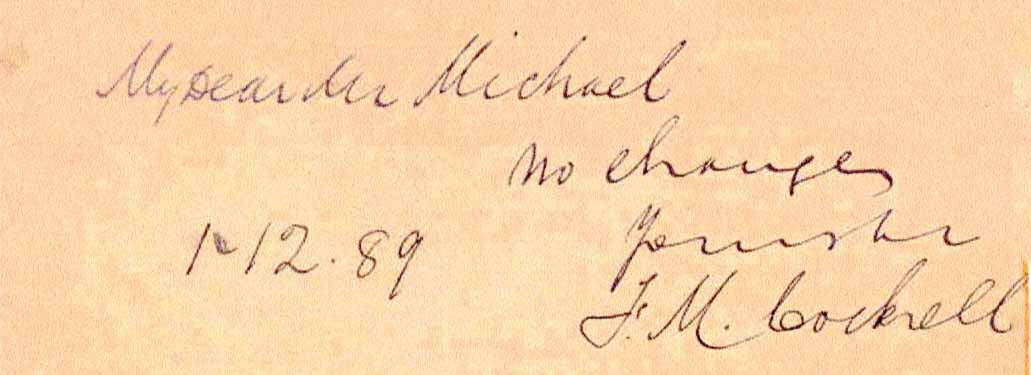 My Dear Mr Michael
No changes
1-12.89
Yours
F. M. Cockrell